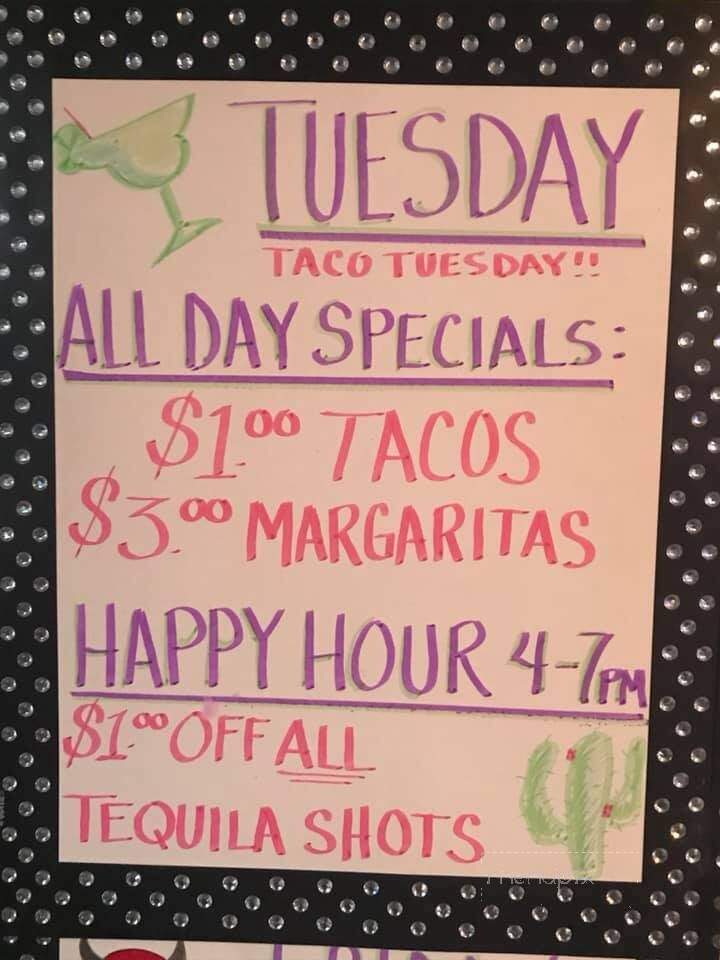 TUESDAY
TACO TUESDAY!!
ALL DAY SPECIALS:
$1.00 TACOS
$3.00 MARGARITAS
HAPPY HOUR 4-7PM
$1.00 OFF ALL
TEQUILA SHOTS